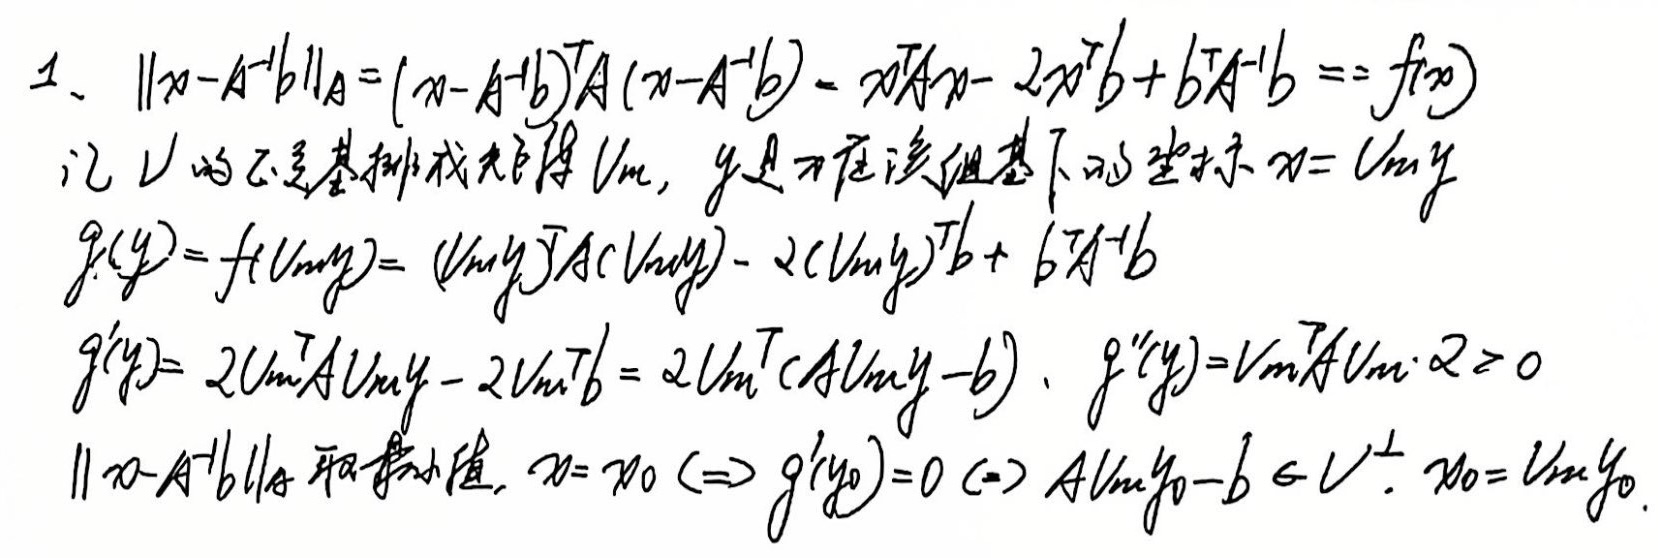 1、||x-A⁻¹b||_A=(x-A⁻¹b)ᵀA(x-A⁻¹b)=xᵀAx-2xᵀb+bᵀA⁻¹b==f(x)
记V的正交基排成矩阵Vm,y是x在该组基下的坐标x=Vmy
g(y)=f(Vmy)=(Vmy)ᵀA(Vmy)-2(Vmy)ᵀb+bᵀA⁻¹b
g'(y)=2VmᵀAVmy-2Vmᵀb=2Vmᵀ(AVmy-b)、g''(y)=VmᵀAVm·2≥0
||x-A⁻¹b||_A取最小值,x=x₀<=>g'(y₀)=0<=>AVmy₀-b∈V^⊥. x₀=Vmy₀.